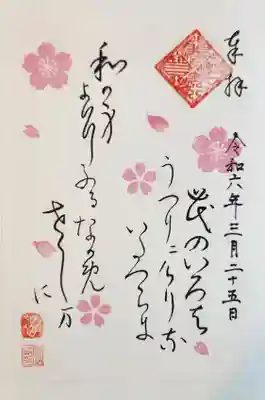 奉拝
令和六年三月二十五日
花のいろは
うつりニけりな
いたつらに
和か身
よにふるなかめ
せし万
に